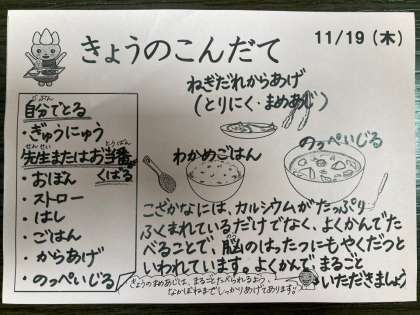 きょうのこんだて
11/19（木）
ねぎだれからあげ
（とりにく・まめあじ）
のっぺいじる
わかめごはん
自分でとる
ぶん
・ぎゅうにゅう
せんせい とうばん
先生またはお当番
くばる
・おぼん
・ストロー
・はし
・ごはん
・からあげ
・のっぺいじる
こざかなには、カルシウムがたっぷり
ふくまれているだけでなく、よくかんでた
べることで、脳のはったつにもやくだつと
いわれています。よくかんで まるごと
いただきましょう
きょうのまめあじは、まるごとたべられるよう、
なかほねまでしっかりあげてあります!!